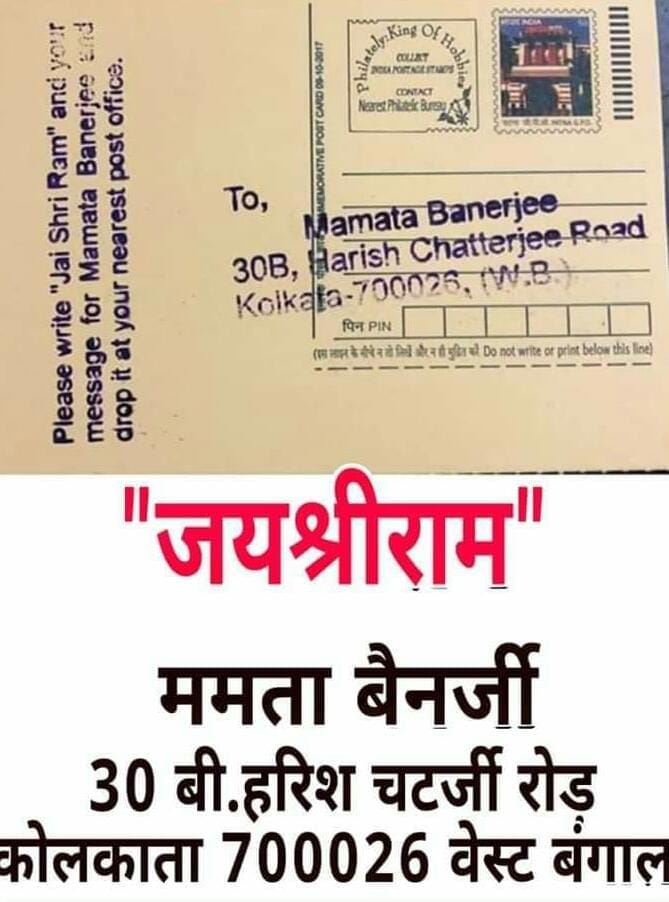 Please write "Jai Shri Ram" and your
message for Mamata Banerjee and
drop it at your nearest post office.
Philately:King Of Hobbies
COLLECT
INDIA POSTAGE STAMPS
CONTACT
Nearest Philatelic Bureau
INDIA
PATNA G.P.O.
MEMORATIVE POST CARD 09-10-2017
To,
Mamata Banerjee
30B, Harish Chatterjee Road
Kolkata-700026, (W.B.)
पिन PIN
(इस लाइन के नीचे न तो लिखें और न ही मुद्रित करें Do not write or print below this line)
"जयश्रीराम"
ममता बैनर्जी
30 बी.हरिश चटर्जी रोड़
कोलकाता 700026 वेस्ट बंगाल